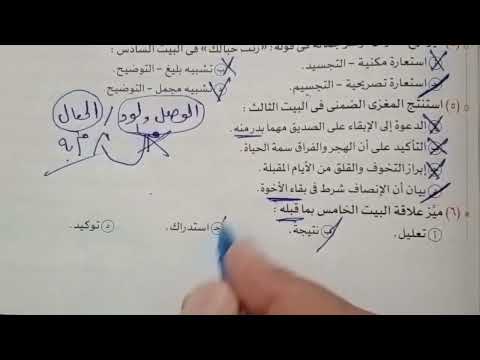 جماله فى قوله: «رثت حبالك» فى البيت السادس :
أ استعارة مكنية - التجسيد. ب تشبيه بليغ - التوضيح
ج استعارة تصريحية - التجسيم. د تشبيه مجمل - التوضيح
(٥) استنتج المغزى الضمنى فى البيت الثالث :
أ الدعوة إلى الإبقاء على الصديق مهما بدر منه.
ب التأكيد على أن الهجر والفراق سمة الحياة.
ج إبراز التخوف والقلق من الأيام المقبلة.
د بيان أن الإنصاف شرط فى بقاء الأخوة.
الوصل ولود / الحال
(٦) ميّز علاقة البيت الخامس بما قبله :
أ تعليل. ب نتيجة. ج استدراك. د توكيد.